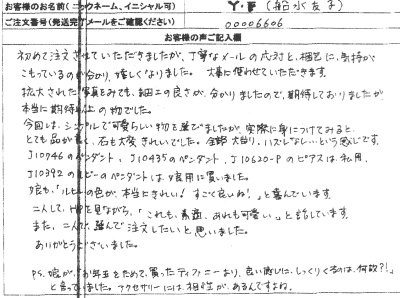 お客様のお名前(ニックネーム、イニシャル可)
Y.F(船水友子)
ご注文番号(発送完了メールをご確認ください)
00006606
お客様の声ご記入欄
初めて注文させていただきましたが、丁寧なメールの応対と、梱包に、気持が
こもっているのが分かり、嬉しくなりました。大事に使わせていただきます。
拡大された写真をみても、細工の良さが、分かりましたので、期待しておりましたが
本当に期待以上の物でした。
今回は、シンプルで可愛らしい物を選びましたが、実際に身につけてみると、
とても品が良く、石も大変きれいでした。全部大当り、ハズレなしという感じです。
J10946のペンダント、J10435のペンダント、J10620-Pのピアスは私用、
J10392のルビーのペンダントは娘用に買いました。
娘も「ルビーの色が、本当にきれい!すごく良いね!」と喜んでいます。
二人して、HPを見ながら、「これも素適、あれも可愛い」と話しています
また、二人で、選んで注文したいと思いました。
ありがとうございました。
P.S. 娘が、「お年玉をためて、買ったティファニーより、良い感じに、しっくりくるのは、何故?!」
と言っていました。アクセサリーには相性が、あるんですよね。